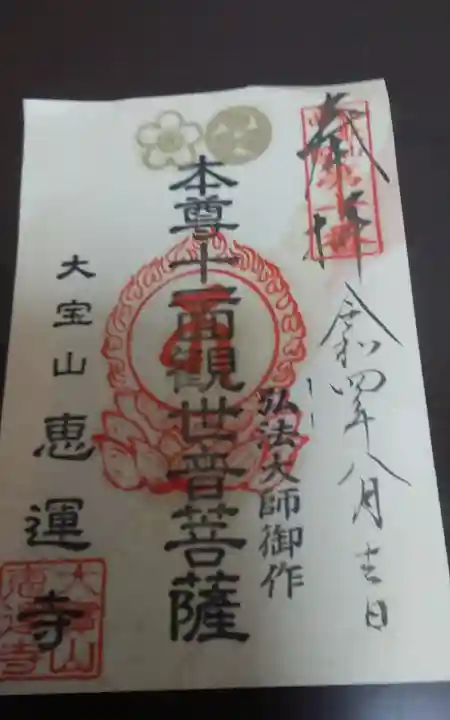 奉拝
令和四年八月吉日
弘法大師御作
本尊十一面観世音菩薩
大宝山 恵運寺
大宝山
恵運寺